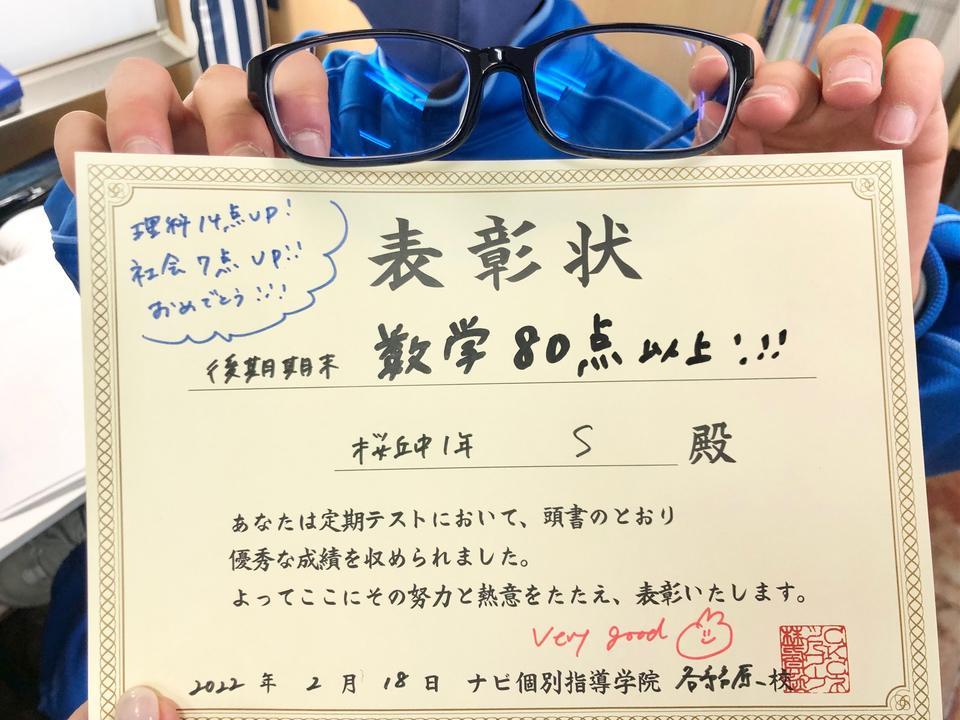 理科14点UP!
社会7点UP!!
おめでとう!!!
表彰状
後期期末 数学80点以上!!!
桜丘中1年 S 殿
あなたは定期テストにおいて、頭書のとおり
優秀な成績を収められました。
よってここにその努力と熱意をたたえ、表彰いたします。
Very good
2022年 2月 18日 ナビ個別指導学院 校